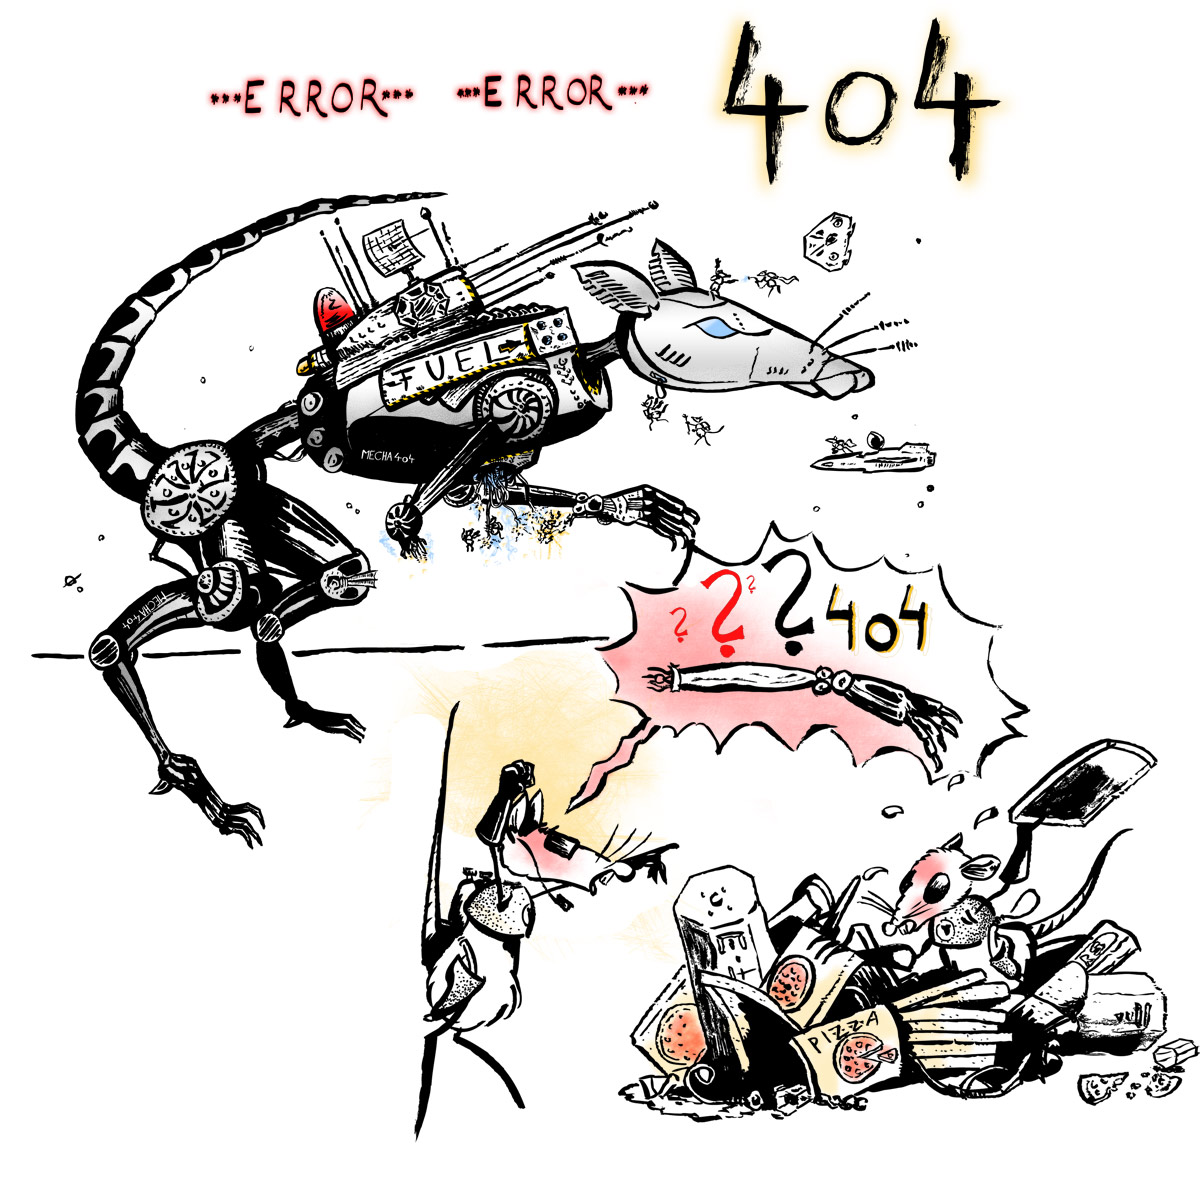 ***ERROR*** ***ERROR*** 404
FUEL
MECHA404
MECHA404
? ? ? ? 404
PIZZA